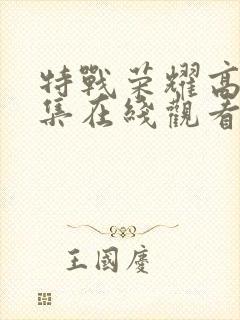 特戰荣耀高
集在綫觀看
王國慶